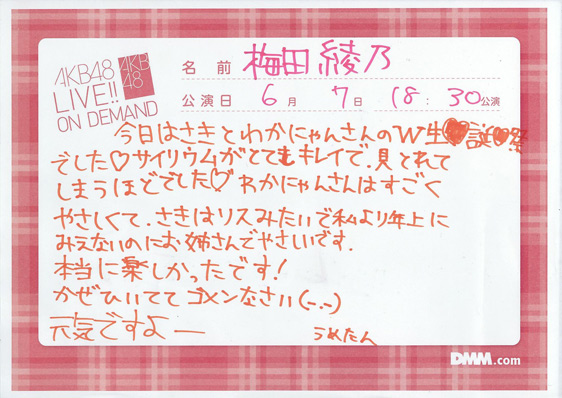 AKB48
LIVE!!
ON DEMAND
AKB
48
名前 梅田綾乃
公演日 6月 7日 18:30公演
今日はさきとわかにゃんさんのW生♡誕♡祭
でした♡サイリウムがとてもキレイで、見とれて
しまうほどでした♡わかにゃんさんはすごく
やさしくて、さきはリスみたいで私より年上に
みえないのにお姉さんでやさしいです.
本当に楽しかったです!
かぜひいてて ゴメンなさい(-.-)
元気ですよー
うめたん
DMM.com